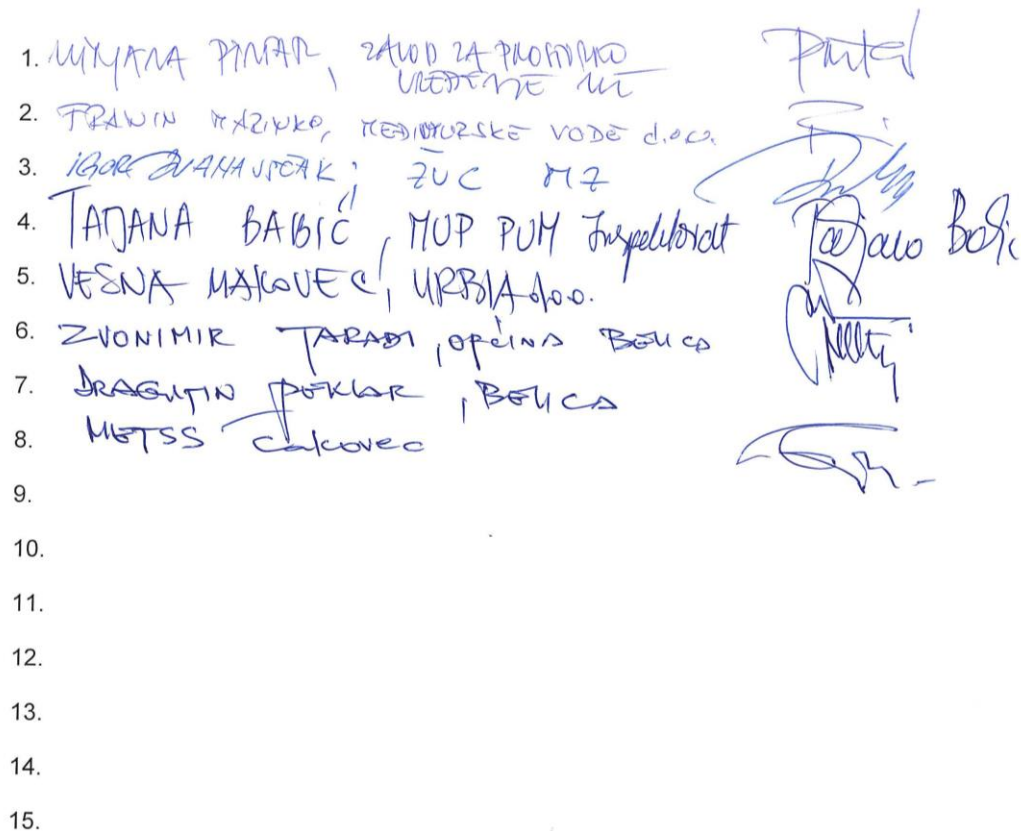 1. MIRJANA PINTAR, ZAVOD ZA PROSTORNO
UREĐENJE MŽ
2. FRANJIN MARINKO, MEĐIMURSKE VODE d.o.o.
3. IGOR ; ŽUC MŽ
4. TATJANA BABIĆ, MUP PUM Inspektorat Tatjana Babić
5. VESNA MAKOVEC, URBIA d.o.o.
6. ZVONIMIR TARADI, OPĆINA BELICA
7. DRAGUTIN POKLAR, BELICA
8. METSS Čakovec
9.
10.
11.
12.
13.
14.
15.